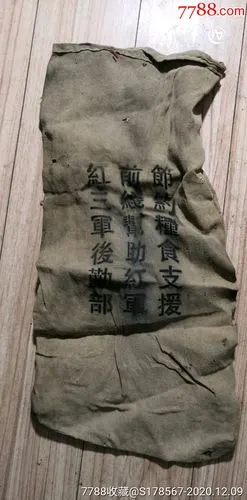 7788.com
節約糧食支援
前綫幫助紅軍
紅三軍後勤部
7788收藏@S178567-2020.12.09